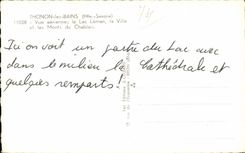 THONON-les-BAINS (Hte-Savoie)
11028 - Vue aérienne; le Lac Léman, la Ville
et les Monts du Chablais.
Ici on voit un partie du Lac avec
dans le milieu la Cathédrale et
quelques remparts!